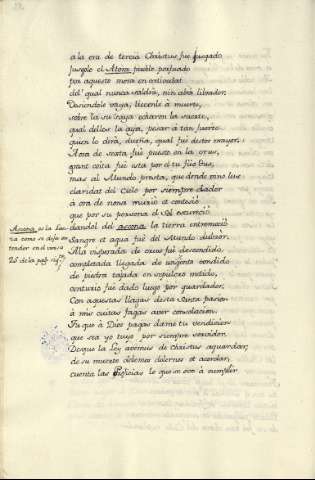 a la era de tercia Christus fue juzgado
juzgolo el Atora pueblo porfiado
por aquesto mora en cativitat
del qual nunca saldrà, nin abrà librador.
Disiendole vaya, lievenle à muerte,
sobre la su saya echaron la suerte,
qual dellos la aya, pesar à tan fuerte
quien lo dirà, dueña, qual fue destor mayor.
A ora de sexta fue puesto en la crus,
grant coita fue esta por el tu fijo dus,
mas al Mundo presta, que dende vino lus
claridat del Cielo por siempre durador
à ora de nona muriò et contesiò
que por su persona el Sol escureciò
dandol del ascona la tierra estremeciò
Sangre et agua fuè del Mundo dulzor.
A la vesperada de crus fue descendido,
completada llegada de ungente condido
de piedra tajada en sepulcro metido,
centurio fue dado luego por guardador.
Con aquestas llagas desta Santa pasion
à mis cuitas fagas aver consolacion.
Tu que à Dios pagas dame tu vendicion
que sea yo tuyo por siempre servidor.
Desque la Ley avemus de Christus aguardar,
de su muerte debemos dolernos et acordar,
cuenta las Profecias lo que se ovo à cumplir
Ascona es la lan
za como se deja en-
tender en el verso